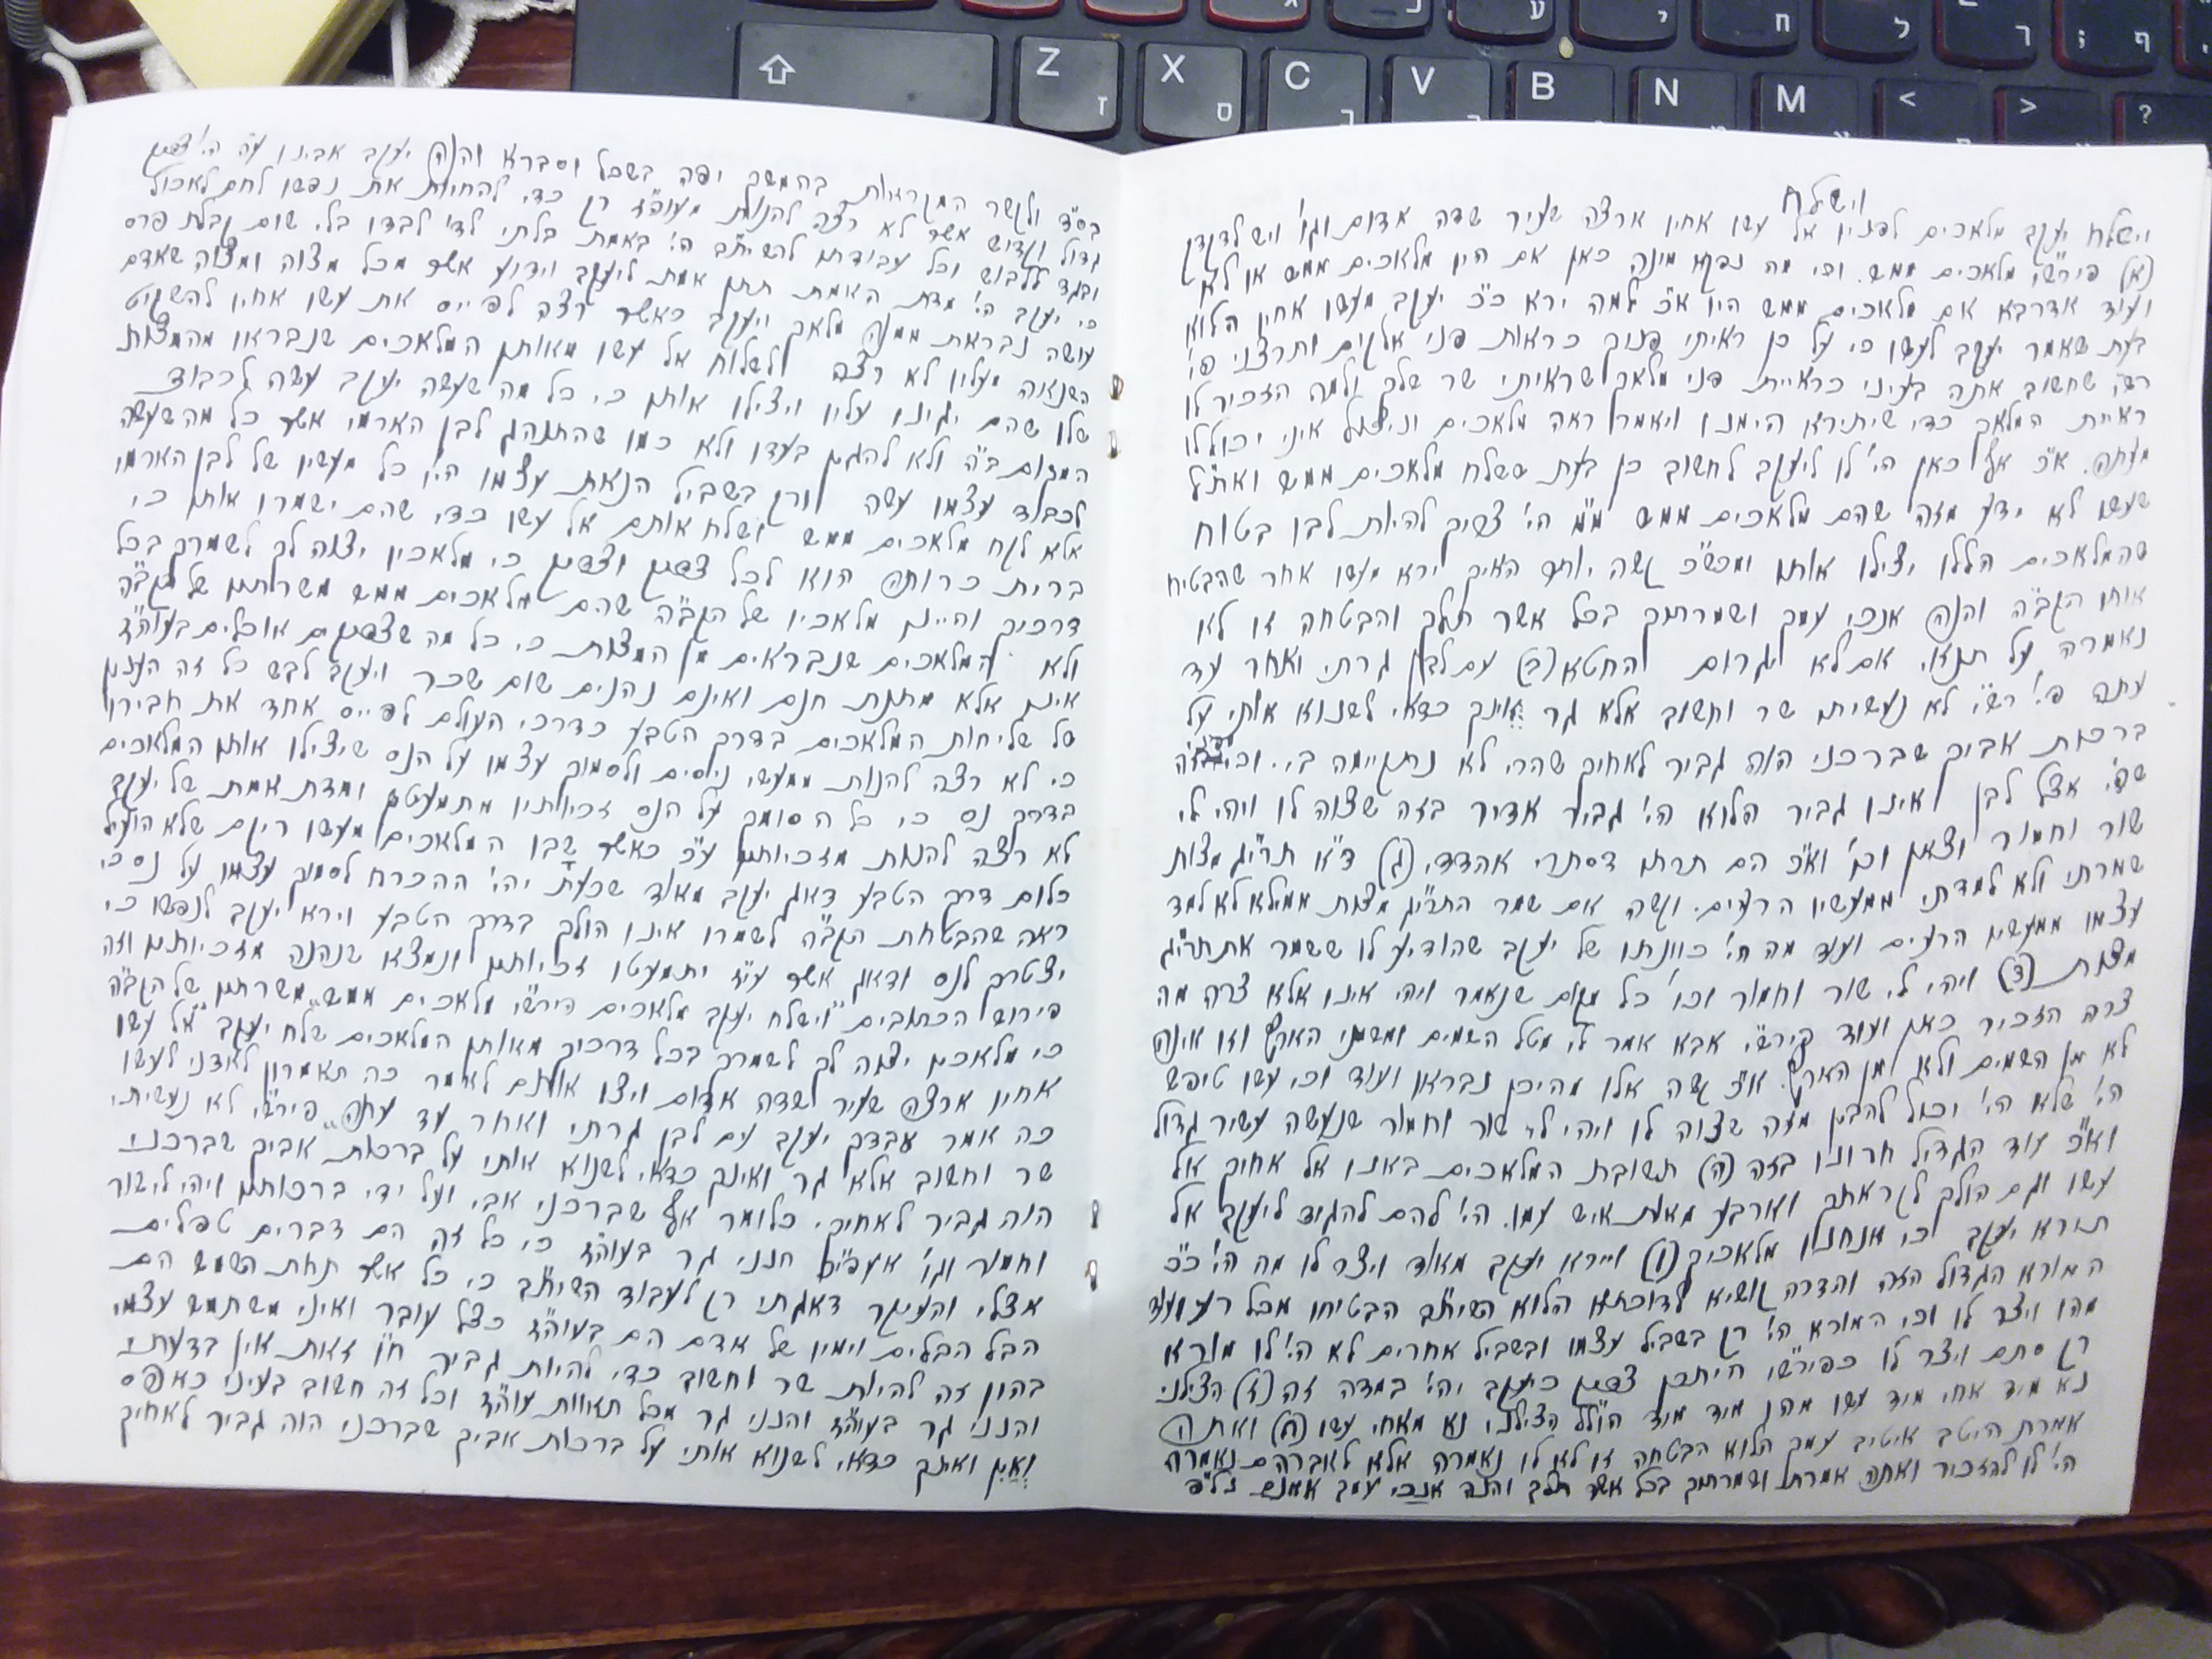 וישלח
וישלח יעקב מלאכים לפניו אל עשו אחיו ארצה שעיר שדה אדום וגו' ויש לדקדק
(א) פירש"י מלאכים ממש. וכי מה נפקא מינה כאן אם היו מלאכים ממש או לא
ועוד אדרבא אם מלאכים ממש היו א"כ למה ירא כ"כ יעקב מעשו אחיו הלוא
בעת שאמר יעקב לעשו כי על כן ראיתי פניך כראות פני אלקים ותרצני פי'
רש"י שחשוב אתה בעיני כראיית פני מלאך שראיתי שר שלך ולמה הזכיר לו
ראיית המלאך כדי שיתירא הימנו ויאמר ראה מלאכים וניצול איני יכול לו
מעתה. א"כ אף כאן הי' לו ליעקב לחשוב כן בעת ששלח מלאכים ממש ואת"ל
שעשו לא ידע מזה שהם מלאכים ממש מ"מ הי' צריך להיות לבו בטוח
שהמלאכים הללו יצילו אותו ומכש"כ קשה יותר האיך ירא מעשו אחר שהבטיח
אותו הקב"ה והנה אנכי עמך ושמרתיך בכל אשר תלך והבטחה זו לא
נאמרה על תנאי אם לא יגרום החטא (ב) עם לבן גרתי ואחר עד
עתה פי' רש"י לא נעשיתי שר וחשוב אלא גר אינך כדאי לשנוא אותי על
ברכות אביך שברכני הוה גביר לאחיך שהרי לא נתקיימה בי. וכי
שהי' אצל לבן ואינו גביר הלוא הי' גביר אדיר בזה שצוה לו ויהי לי
שור וחמור וצאן וכו' וא"כ הם תרתי דסתרי אהדדי (ג) ד"א תרי"ג מצות
שמרתי ולא למדתי ממעשיו הרעים. וקשה אם שמר התרי"ג מצות ממילא לא למד
עצמו ממעשיו הרעים ועוד מה הי' כוונתו של יעקב שהודיע לו ששמר את תרי"ג
מצות (ד) ויהי לי שור וחמור וכו' כל מקום שנאמר ויהי אינו אלא צרה מה
צרה הזכיר כאן ועוד פירש"י אבא אמר לי מטל השמים ומשמני הארץ וזו אינה
לא מן השמים ולא מן הארץ. א"כ קשה אלו מהיכן נבראו ועוד וכי עשו טיפש
הי' שלא הי' יכול להבין מזה שצוה לו ויהי לי שור וחמור שנעשה עשיר גדול
וא"כ עוד הגדיל חרונו בזה (ה) תשובת המלאכים באנו אל אחיך אל
עשו וגם הולך לקראתך וארבע מאות איש עמו. הי' להם להגיד ליעקב אל
תירא יעקב וכי אנחנו מלאכיך (ו) ויירא יעקב מאוד ויצר לו מה הי' כ"כ
המורא הגדול הזה והדרה קושיא לדוכתא הלוא השי"ת הבטיחו מכל רע ועוד
מהו ויצר לו וכי המורא הי' רק בשביל עצמו ובשביל אחרים לא הי' לו מורא
רק סתם ויצר לו כפירש"י היתכן צדיק כיעקב יהי' במדה זה (ז) הצילני
נא מיד אחי מיד עשו מהו מיד מיד הול"ל הצילני נא מאחי עשו (ח) ואתה
אמרת היטב איטיב עמך הלוא הבטחה זו לא לו נאמרה אלא לאברהם נאמרה
הי' לו להזכיר ואתה אמרת ושמרתיך בכל אשר תלך והנה אנכי עמך אמנם נל"פ
בס"ד ולקשר המקראות בהמשך יפה בשכל וסברא והנה יעקב אבינו ע"ה הי' צדיק
גדול וקדוש אשר לא רצה להנות מעוה"ז רק כדי להחיות את נפשו לחם לאכול
ובגד ללבוש וכל עבודתו להשי"ת הי' באמת בלתי לד' לבדו בלי שום קבלת פרס
כי יעקב הי' מדת האמת תתן אמת ליעקב וידוע אשר מכל מצוה ומצוה שאדם
עושה נבראת ממנה מלאך ויעקב כאשר רצה לפייס את עשו אחיו להשקיט
השנאה מעליו לא רצה לשלוח אל עשו מאותן המלאכים שנבראו מהמצות
שלו שהם יגינו עליו ויצילו אותו כי כל מה שעשה יעקב עשה לכבוד
המקום ב"ה ולא להגין בעדו ולא כמו שהתנהג לבן הארמי אשר כל מה שעשה
לכבוד עצמו עשה ורק בשביל הנאת עצמו היו כל מעשיו של לבן הארמי
אלא לקח מלאכים ממש ושלח אותם אל עשו כדי שהם ישמרו אותו כי
ברית כרותה הוא לכל צדיק וצדיק כי מלאכיו יצוה לך לשמרך בכל
דרכיך והיינו מלאכיו של הקב"ה שהם מלאכים ממש משרתיו של הקב"ה
ולא המלאכים שנבראים מן המצות כי כל מה שצדיקים אוכלים בעוה"ז
אינו אלא מתנת חנם ואינם נהנים שום שכר ויעקב לבש כל זה הענין
של שליחות המלאכים בדרך הטבע כדרכי העולם לפייס אחד את חבירו
כי לא רצה להנות ממעשי ניסים ולסמוך עצמו על הנס שיצילו אותו המלאכים
בדרך נס כי כל הסומך על הנס זכיותיו מתמעטין ומדת אמת של יעקב
לא רצה להנות מזכיותיו ע"כ כאשר שבו המלאכים מעשו ריקם שלא הועיל
כלום דרך הטבע דאג יעקב מאוד שכעת יהי' ההכרח לסמוך עצמו על נס כי
ראה שהבטחת הקב"ה לשמרו אינו הולך בדרך הטבע וירא יעקב לנפשו כי
יצטרך לנס ודאג אשר עי"ז יתמעטו זכיותיו ונמצא שנהנה מזכיותיו וזה
פירוש הכתובים "וישלח יעקב מלאכים פירש"י מלאכים ממש" משרתיו של הקב"ה
כי מלאכיו יצוה לך לשמרך בכל דרכיך מאותן המלאכים שלח יעקב "אל עשו
אחיו ארצה שעיר שדה אדום ויצו אותם לאמר כה תאמרון לאדני לעשו
כה אמר עבדך יעקב עם לבן גרתי ואחר עד עתה" פירש"י לא נעשיתי
שר וחשוב אלא גר ואינך כדאי לשנוא אותי על ברכות אביך שברכני
הוה גביר לאחיך. כלומר אף שברכני אבי ועל ידי ברכותיו ויהי לי שור
וחמור וגו' אעפ"כ הנני גר בעוה"ז כי כל זה הם דברים טפלים
אצלי והעיקר דאגתי רק לעבוד השי"ת כי כל אשר תחת השמש הם
הבל הבלים וימיו של אדם הם בעוה"ז כצל עובר ואיני משתמש עצמי
בהון זה להיות שר וחשוב כדי להיות גביר ח"ו זאת אין בדעתי
והנני גר בעוה"ז והנני גר מכל תאוות עוה"ז וכל זה חשוב בעיני כאפס
וָאַיִן ואינך כדאי לשנוא אותי על ברכות אביך שברכני הוה גביר לאחיך